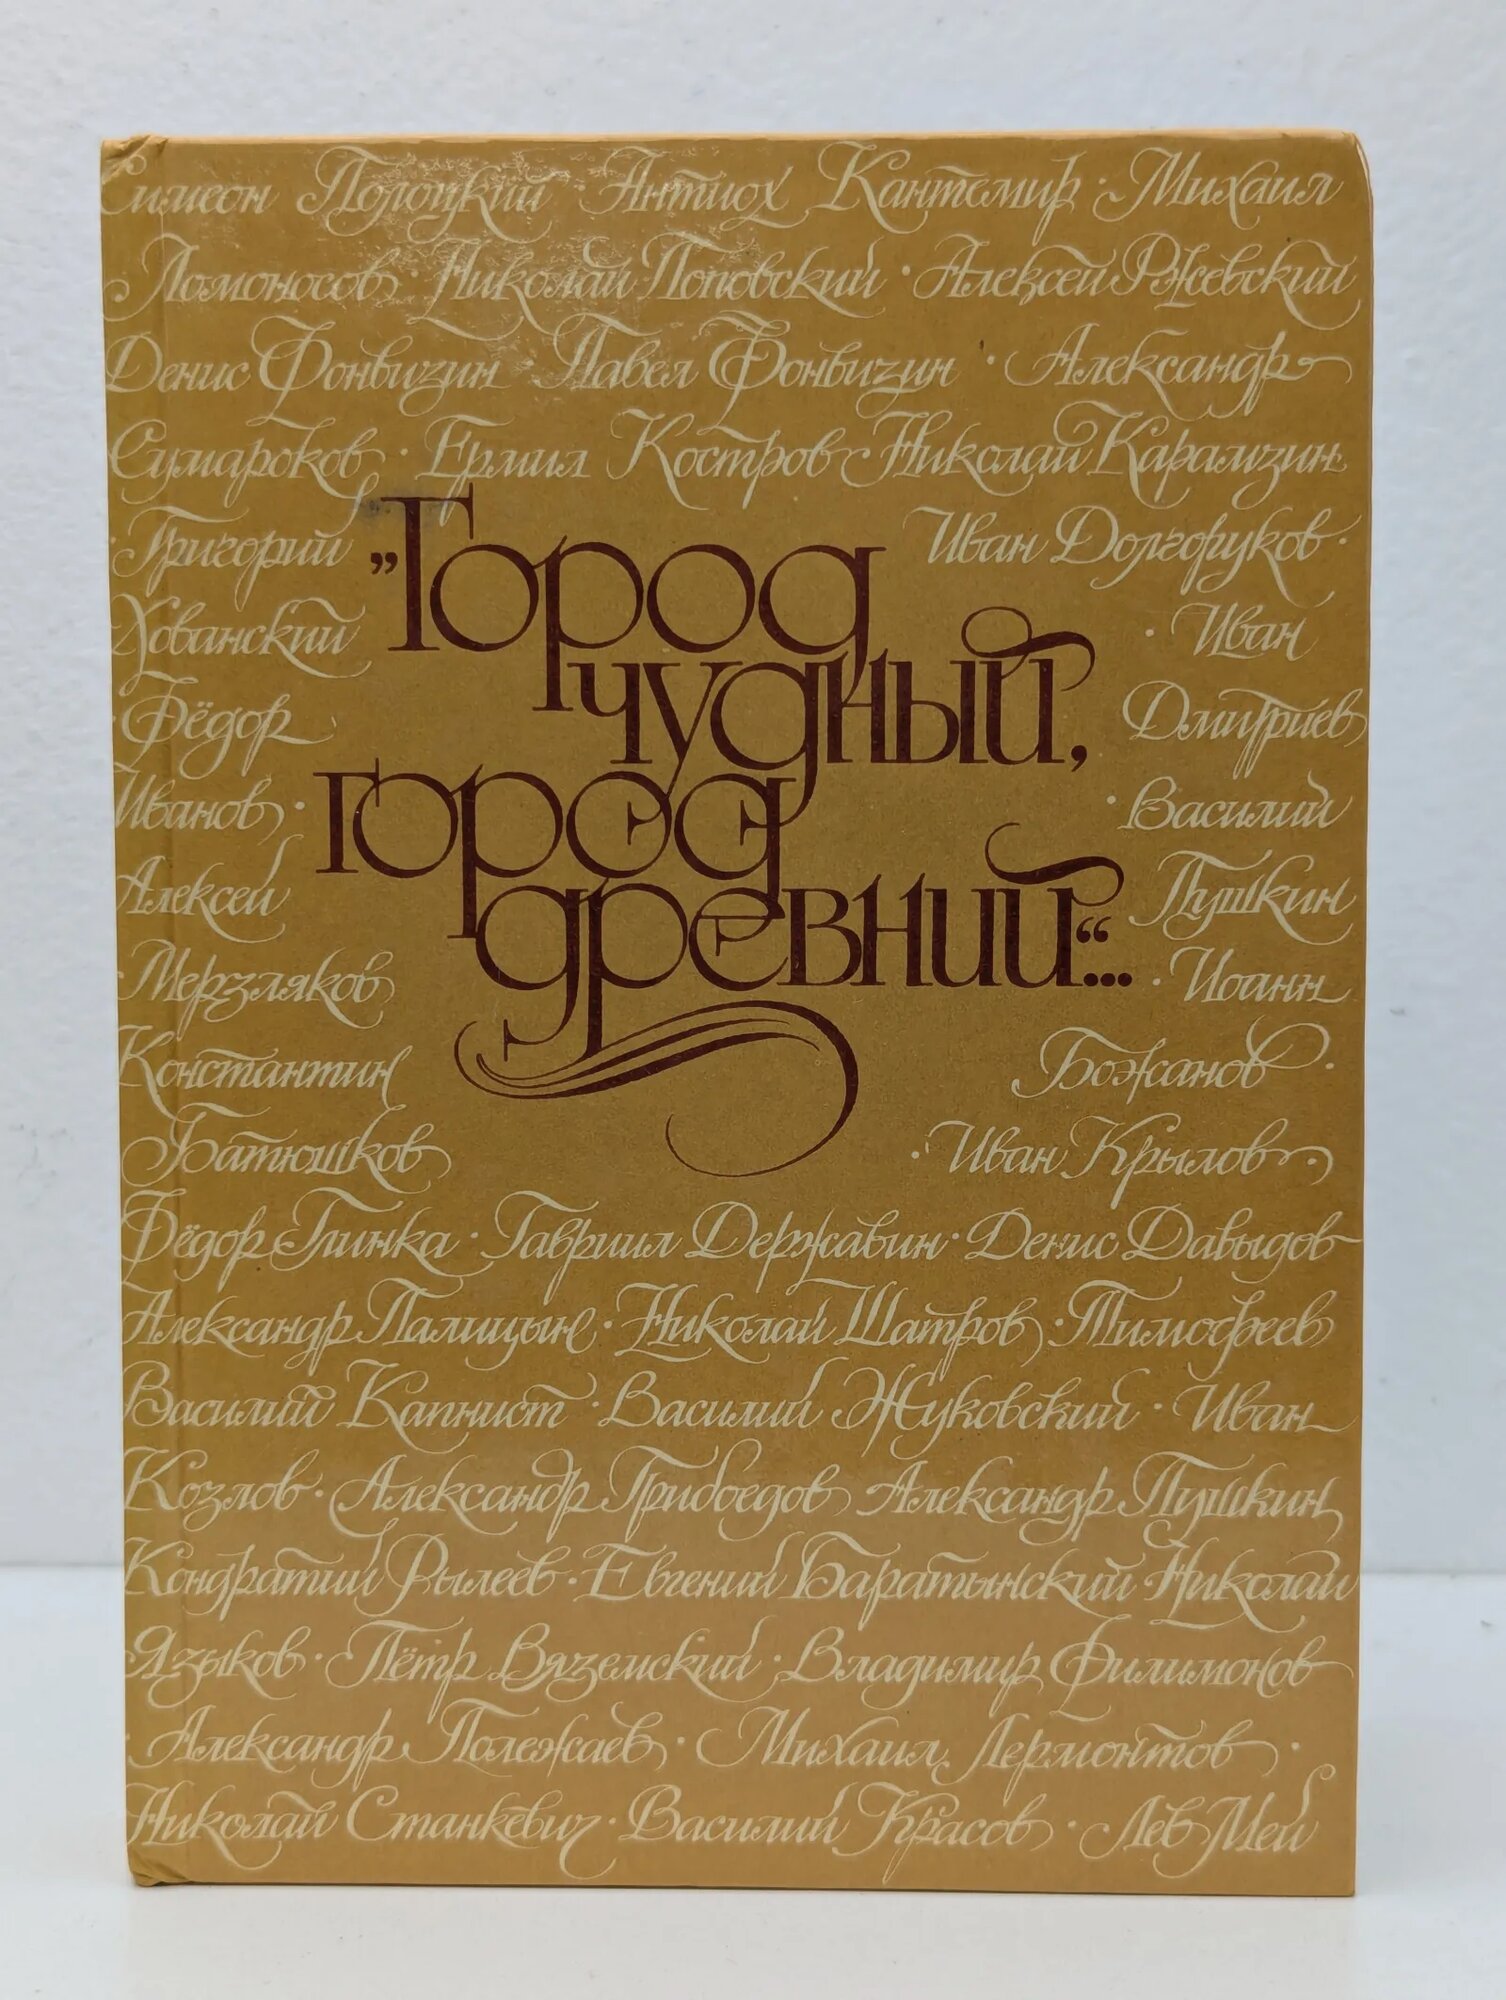 Симеон Полоцкий Антиох Кантемир · Михаил
Ломоносов · Николай Поповский · Алексей Ржевский
Денис Фонвизин · Павел Фонвизин · Александр
Сумароков · Ермил Костров · Николай Карамзин
· Григорий
Иван Долгоруков ·
Хованский
· Иван
· Фёдор
Дмитриев
Иванов ·
· Василий
Алексей
Пушкин
· Мерзляков
· Иоанн
Константин
Божанов ·
Батюшков
· Иван Крылов ·
„Город
чудный,
город
древний“...
Фёдор Глинка · Гавриил Державин · Денис Давыдов
Александр Палицын · Николай Шатров · Тимофеев
Василий Капнист · Василий Жуковский · Иван
Козлов · Александр Грибоедов Александр Пушкин
Кондратий Рылеев · Евгений Баратынский · Николай
Языков · Пётр Вяземский · Владимир Филимонов
· Александр Полежаев · Михаил Лермонтов ·
Николай Станкевич · Василий Красов · Лев Мей